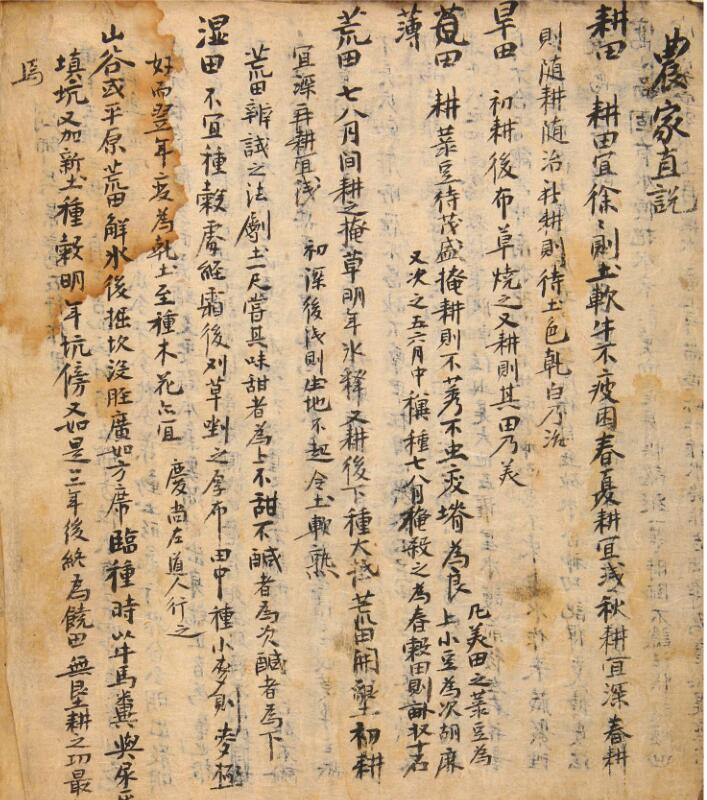 農家直說
耕田 耕田宜徐〻則土軟牛不疲困春夏耕宜淺秋耕宜深春耕
則隨耕隨治秋耕則待土色乾白乃治
旱田 初耕後布草燒之又耕則其田乃美
薄田 耕菉豆待茂盛掩耕則不莠不虫變塉為良 凡美田之菉豆為
上小豆為次胡麻
又次之五六月中穊種七八月掩殺之為春穀田則畝收十石
荒田 七八月間耕之掩草明年氷釋又耕後下種大抵荒田開墾初耕
宜深再耕宜淺 初深後淺則生地不起令土軟熟
荒田辨試之法劚土一尺嘗其味甜者為上不甜不鹹者為次鹹者為下
湿田不宜種穀處經霜後刈草剉之厚布田中種小麥則麥極
好而翌年変為乾土至種木花亦宜 慶尚左道人行之
山谷或平原荒田解氷後掘坎深廣如方席臨種時以牛馬糞與尿
填坑又加新土種穀明年坑傍又如是三年後終為饒田無墾耕之功最
焉